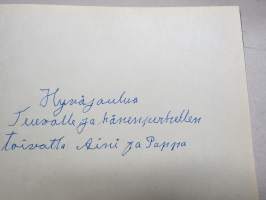 Hyvääjoulua
Tuevalle ja hänenperhellen
toivatta Aini ja Pappa